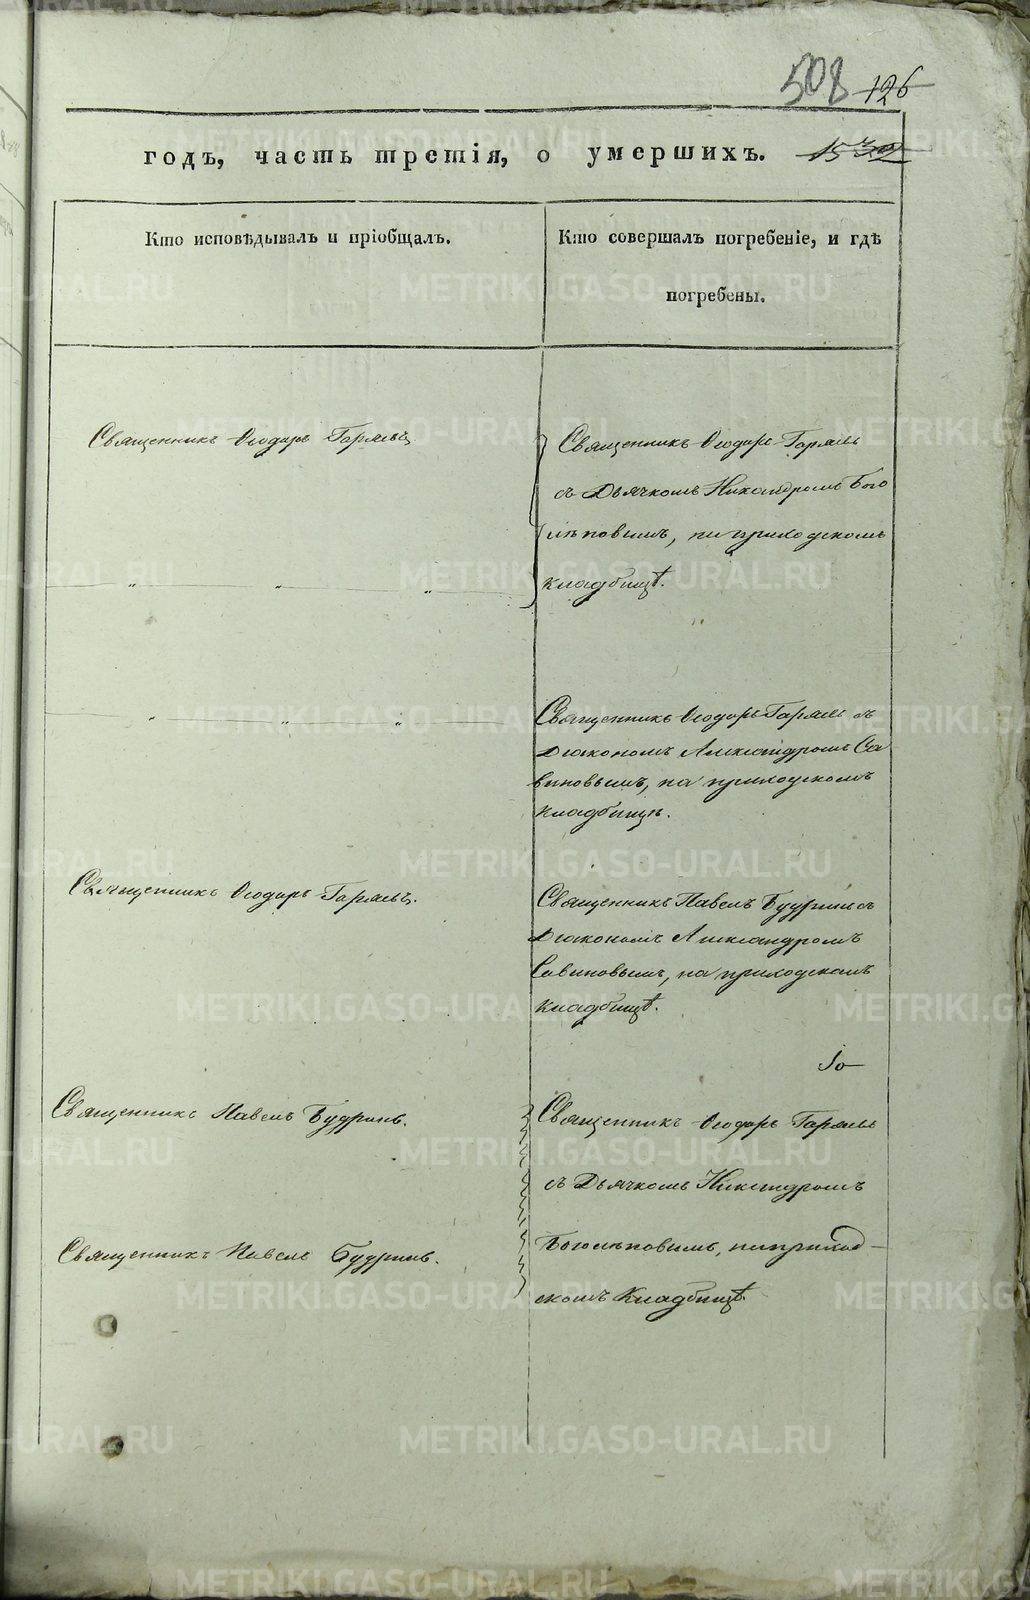 508 126
годъ, часть третія, о умершихъ. 1539
Кто исповѣдывалъ и пріобщалъ.
Кто совершалъ погребеніе, и гдѣ
погребены.
Священникъ Ѳеодоръ Гаряевъ
Священникъ Ѳеодоръ Гаряевъ
съ Дьячкомъ Никандромъ Бого
лѣповымъ, на приходскомъ
кладбищѣ.
" " "
" " "
Священникъ Ѳеодоръ Гаряевъ съ
Діакономъ Александромъ Са
виновымъ, на приходскомъ
кладбищѣ.
Священникъ Ѳеодоръ Гаряевъ.
Священникъ Павелъ Будринъ съ
Діакономъ Александромъ
Савиновымъ, на приходскомъ
кладбищѣ.
Священникъ Павелъ Будринъ.
Священникъ Ѳеодоръ Гаряевъ
съ Дьячкомъ Никандромъ
Боголѣповымъ, на приход-
скомъ Кладбищѣ.
Священникъ Павелъ Будринъ.
METRIKI.GASO-URAL.RU